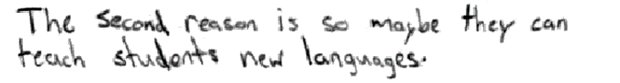 The second reason is so maybe they can
teach students new languages.